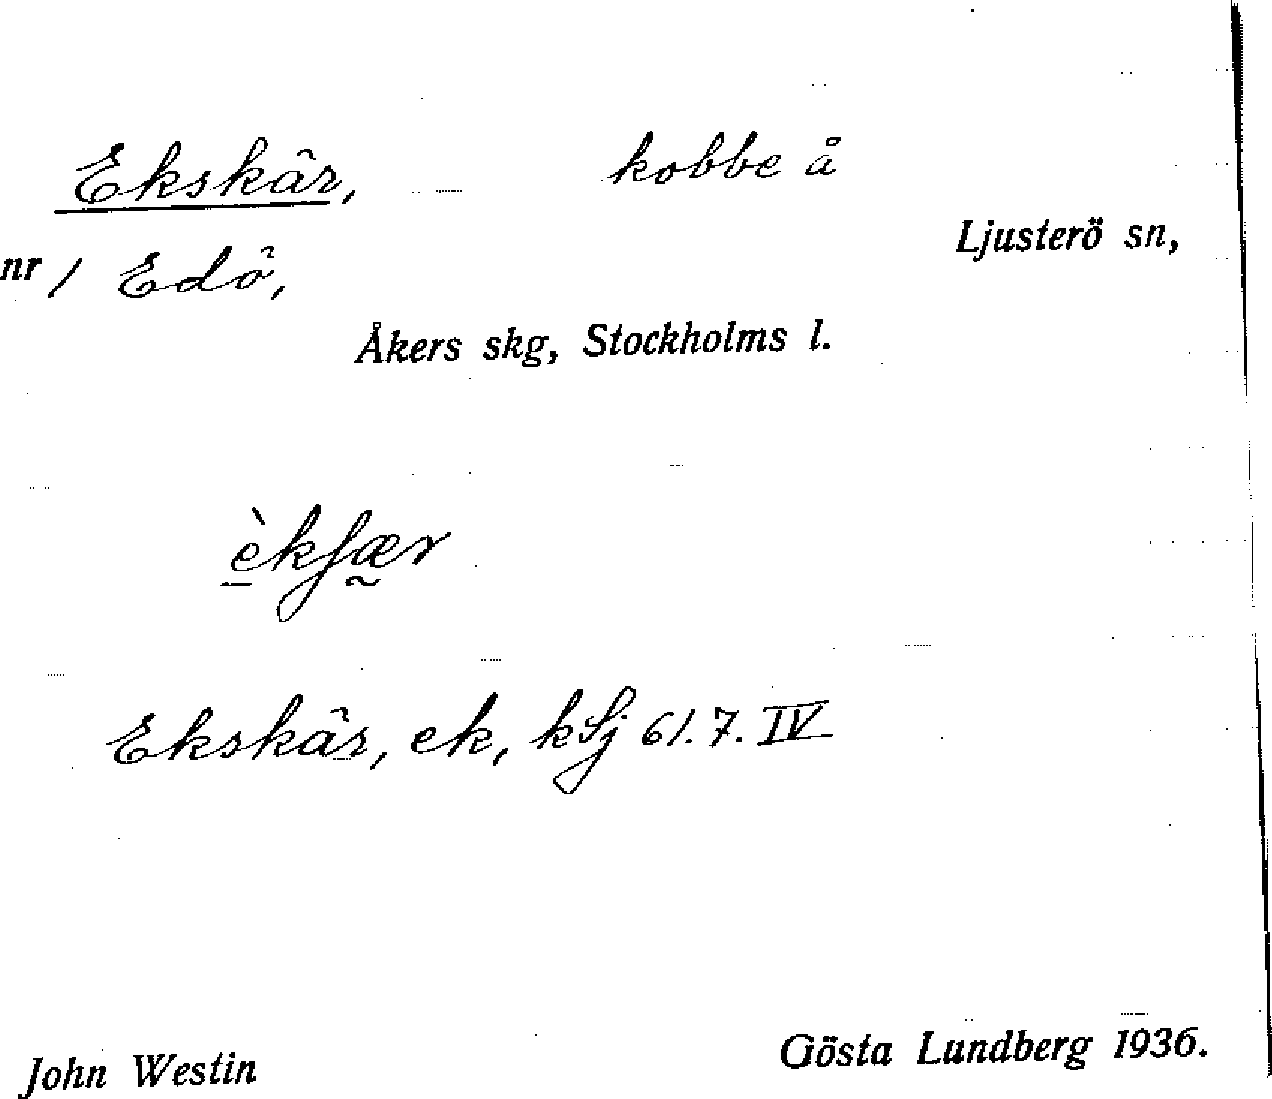 Ekskär, kobbe å
Ljusterö sn,
nr 1 Edö,
Åkers skg, Stockholms l.
Ekskär, ek, kSj 61.7.IV
John Westin
Gösta Lundberg 1936.